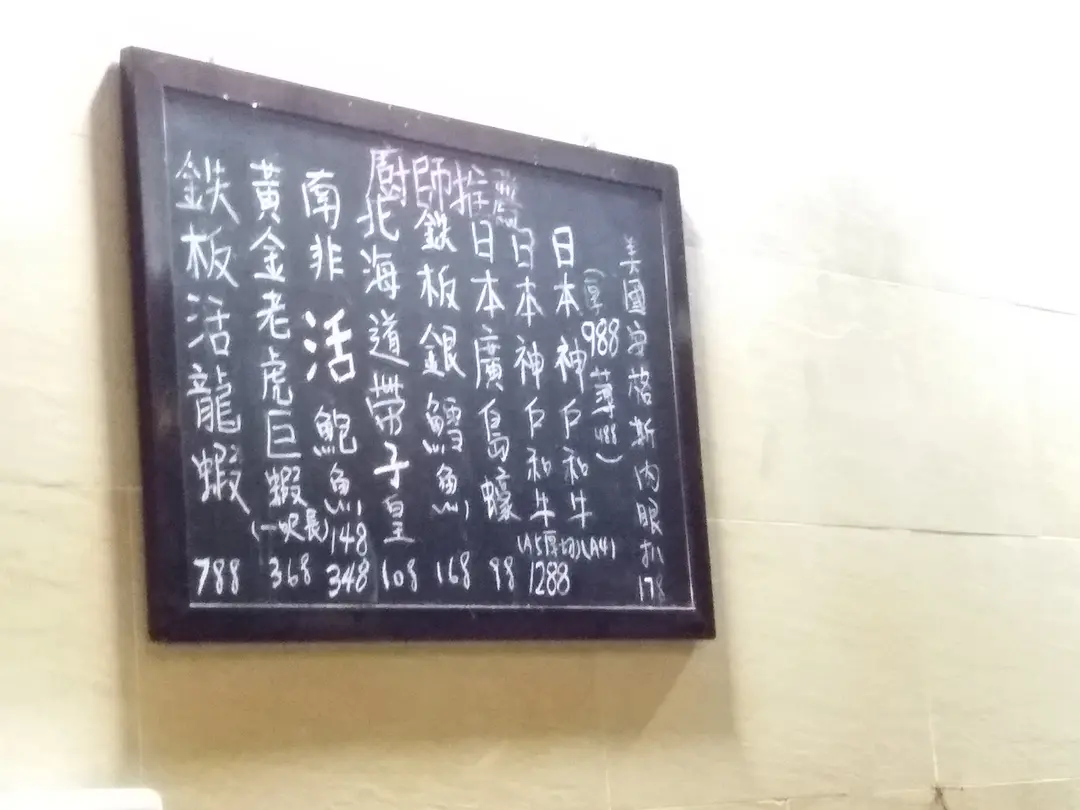 廚師推薦
美國安格斯肉眼扒 178
日本神戶和牛(A4)
(厚988 薄488)
日本神戶和牛(A5厚切) 1288
日本廣島蠔 98
鉄板銀鱈魚 168
北海道帶子皇 108
南非活鮑魚 148 348
黃金老虎巨蝦(一呎長) 368
鉄板活龍蝦 788